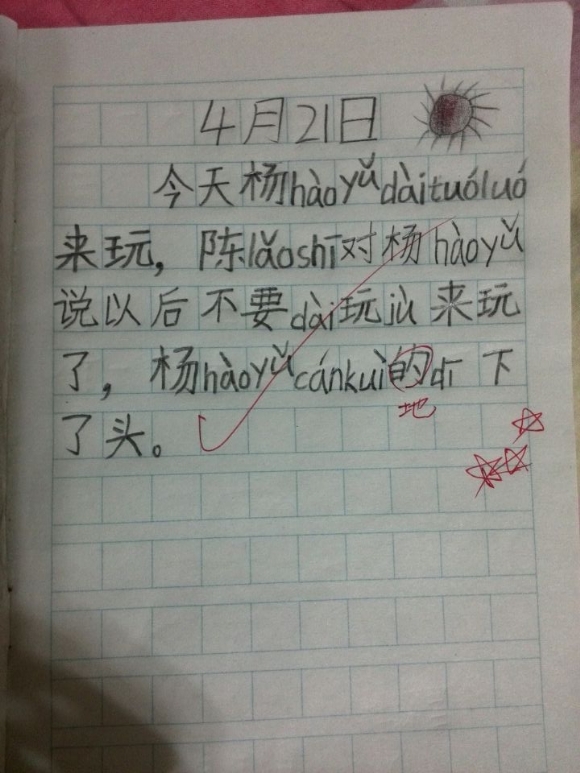 4月21日
今天杨hàoyǔdàituóluó
来玩，陈lǎoshī对杨hàoyǔ
说以后不要dài玩jù来玩
了，杨hàoyǔcánkuì的dī下
地
了头。